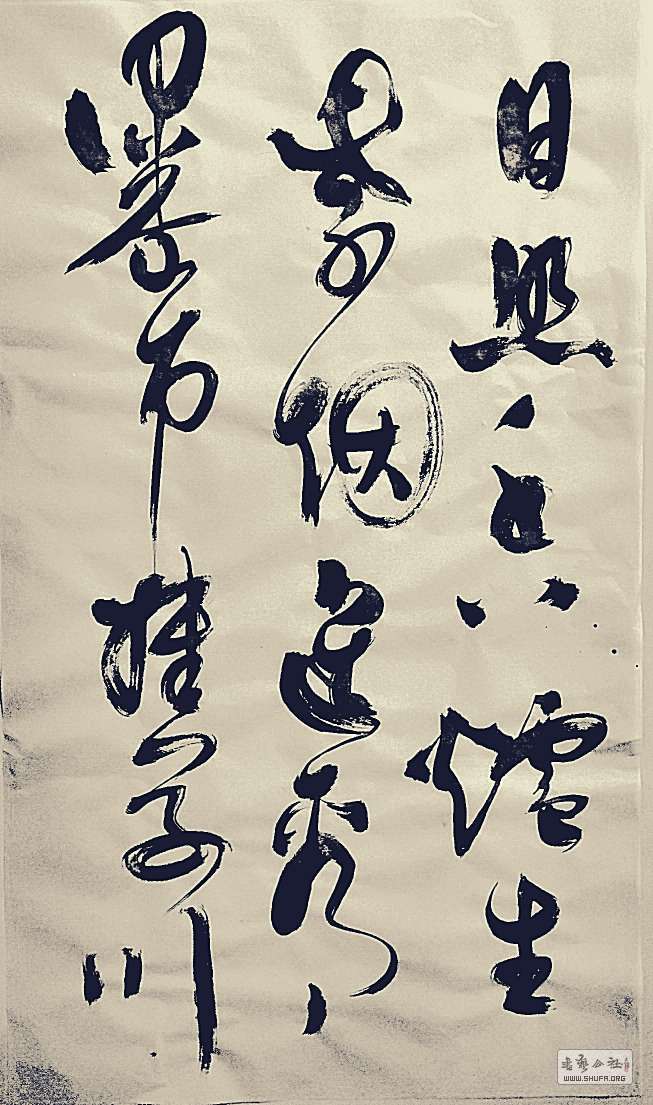 日照香爐生
紫烟遥看
瀑布挂前川
书艺公社
WWW.SHUFA.ORG